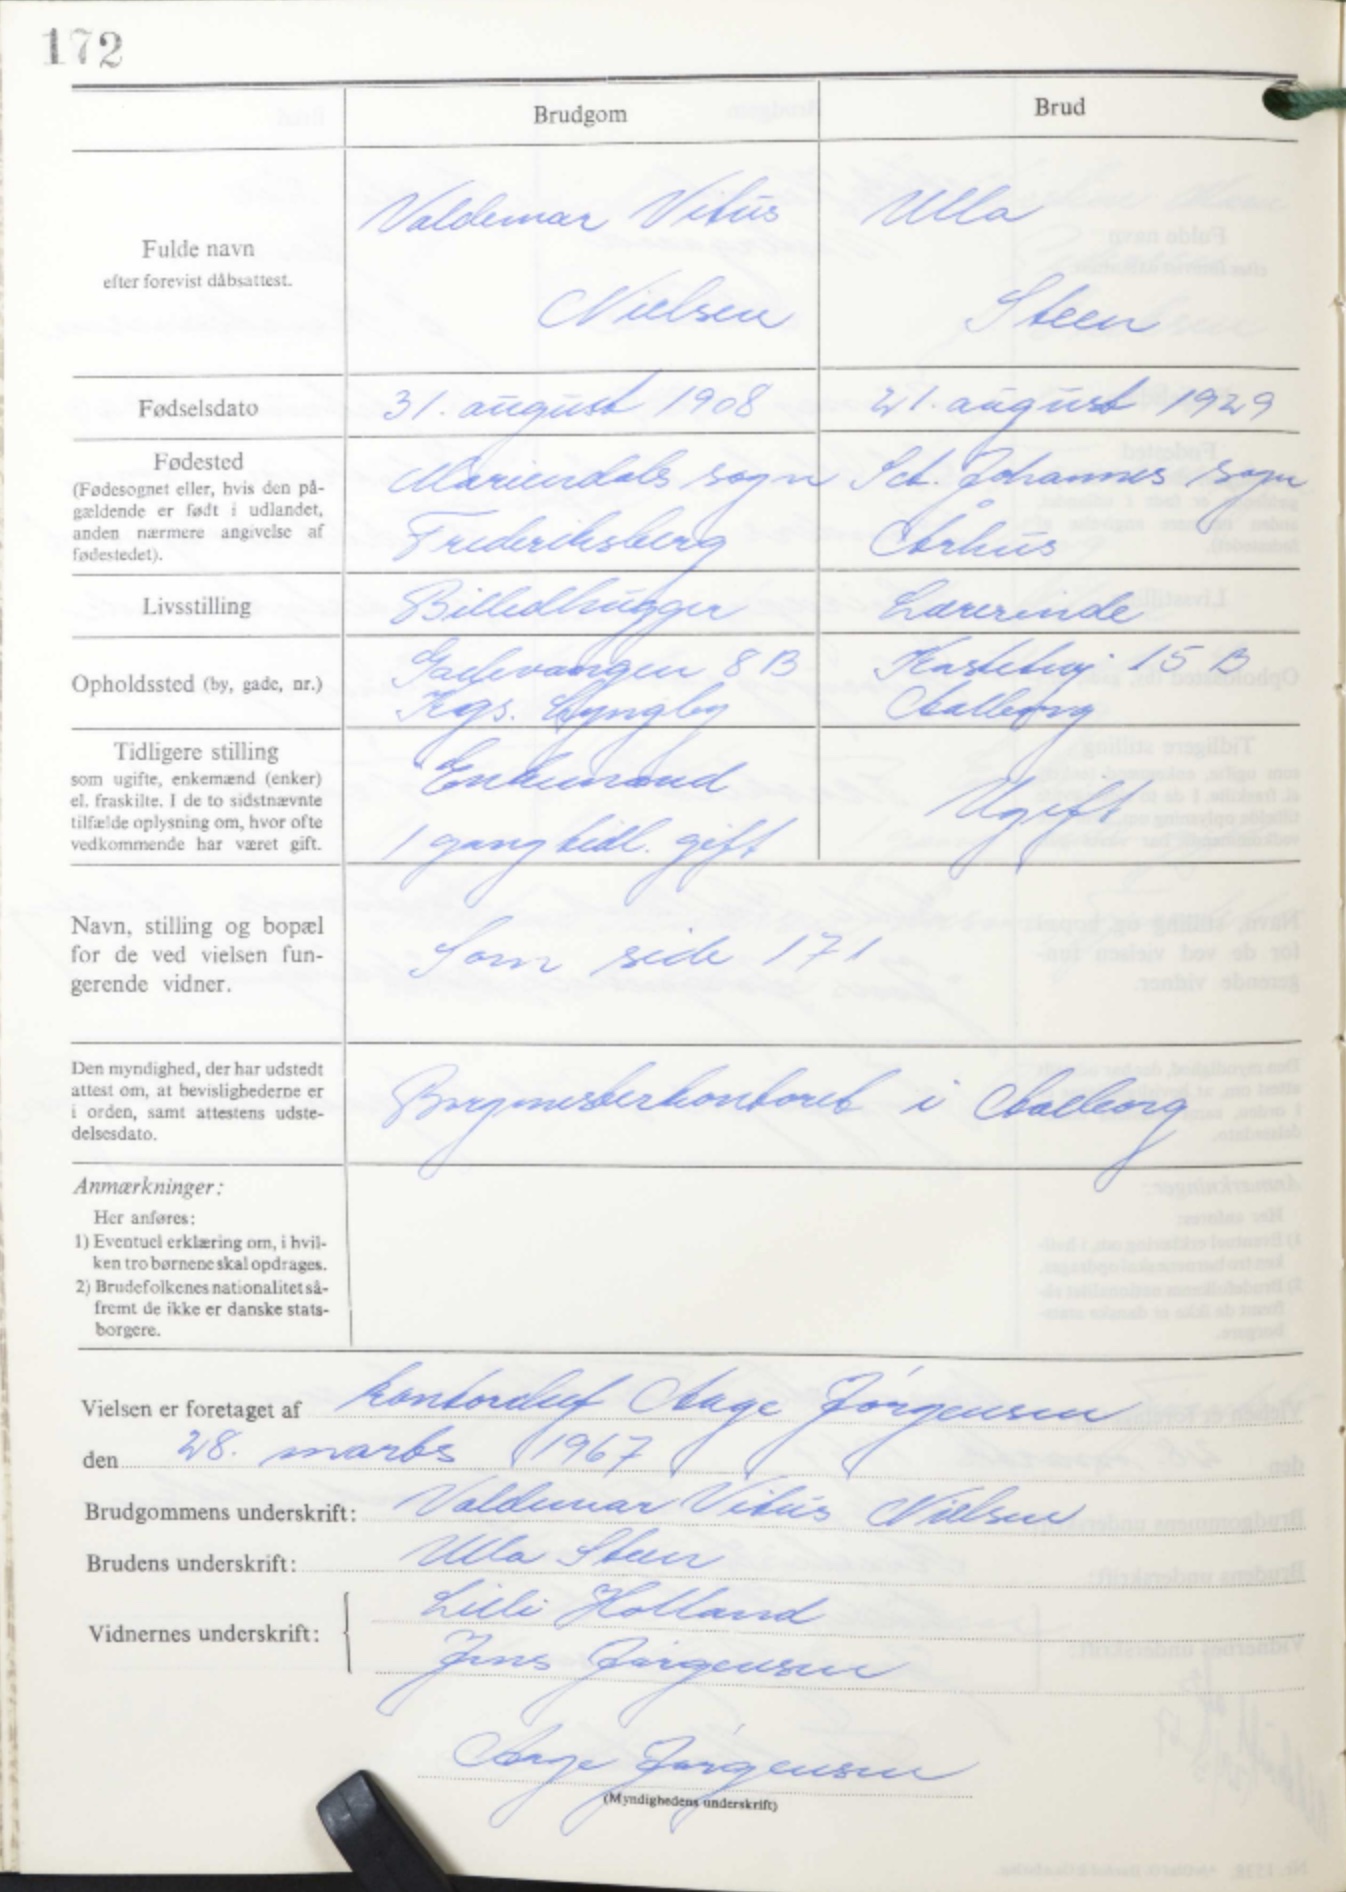 172
Brudgom
Brud
Fulde navn
efter forevist dåbsattest.
Valdemar Vitus
Nielsen
Ulla
Steen
Fødselsdato
31. august 1908
21. august 1929
Fødested
(Fødesognet eller, hvis den på-
gældende er født i udlandet,
anden nærmere angivelse af
fødestedet).
Mariendals sogn
Frederiksberg
Sct. Johannes sogn
Århus
Livsstilling
Billedhugger
Lærerinde
Opholdssted (by, gade, nr.)
8 B
Kgs. Lyngby
15 B
Aalborg
Tidligere stilling
som ugifte, enkemænd (enker)
el. fraskilte. I de to sidstnævnte
tilfælde oplysning om, hvor ofte
vedkommende har været gift.
Enkemand
1 gang tidl. gift
Ugift
Navn, stilling og bopæl
for de ved vielsen fun-
gerende vidner.
Som side 171
Den myndighed, der har udstedt
attest om, at bevislighederne er
i orden, samt attestens udste-
delsesdato.
Borgmesterkontoret i Aalborg
Anmærkninger:
Her anføres:
1) Eventuel erklæring om, i hvil-
ken tro børnene skal opdrages.
2) Brudefolkenes nationalitet så-
fremt de ikke er danske stats-
borgere.
Vielsen er foretaget af kontorchef Aage Jørgensen
den 28. marts 1967
Brudgommens underskrift: Valdemar Vitus Nielsen
Brudens underskrift: Ulla Steen
Vidnernes underskrift:
Lilli Holland
Jens Jørgensen
Aage Jørgensen
(Myndighedens underskrift)